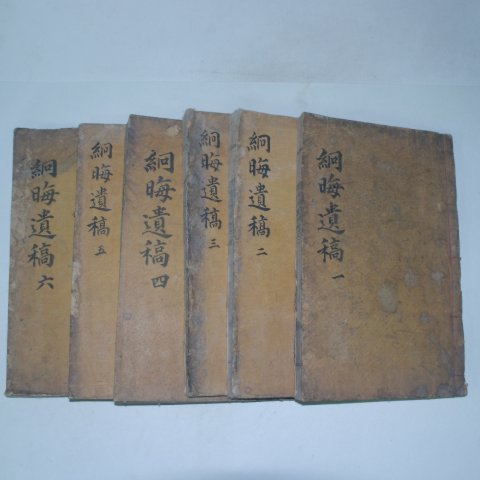 絅晦遺稿 一
絅晦遺稿 二
絅晦遺稿 三
絅晦遺稿 四
絅晦遺稿 五
絅晦遺稿 六